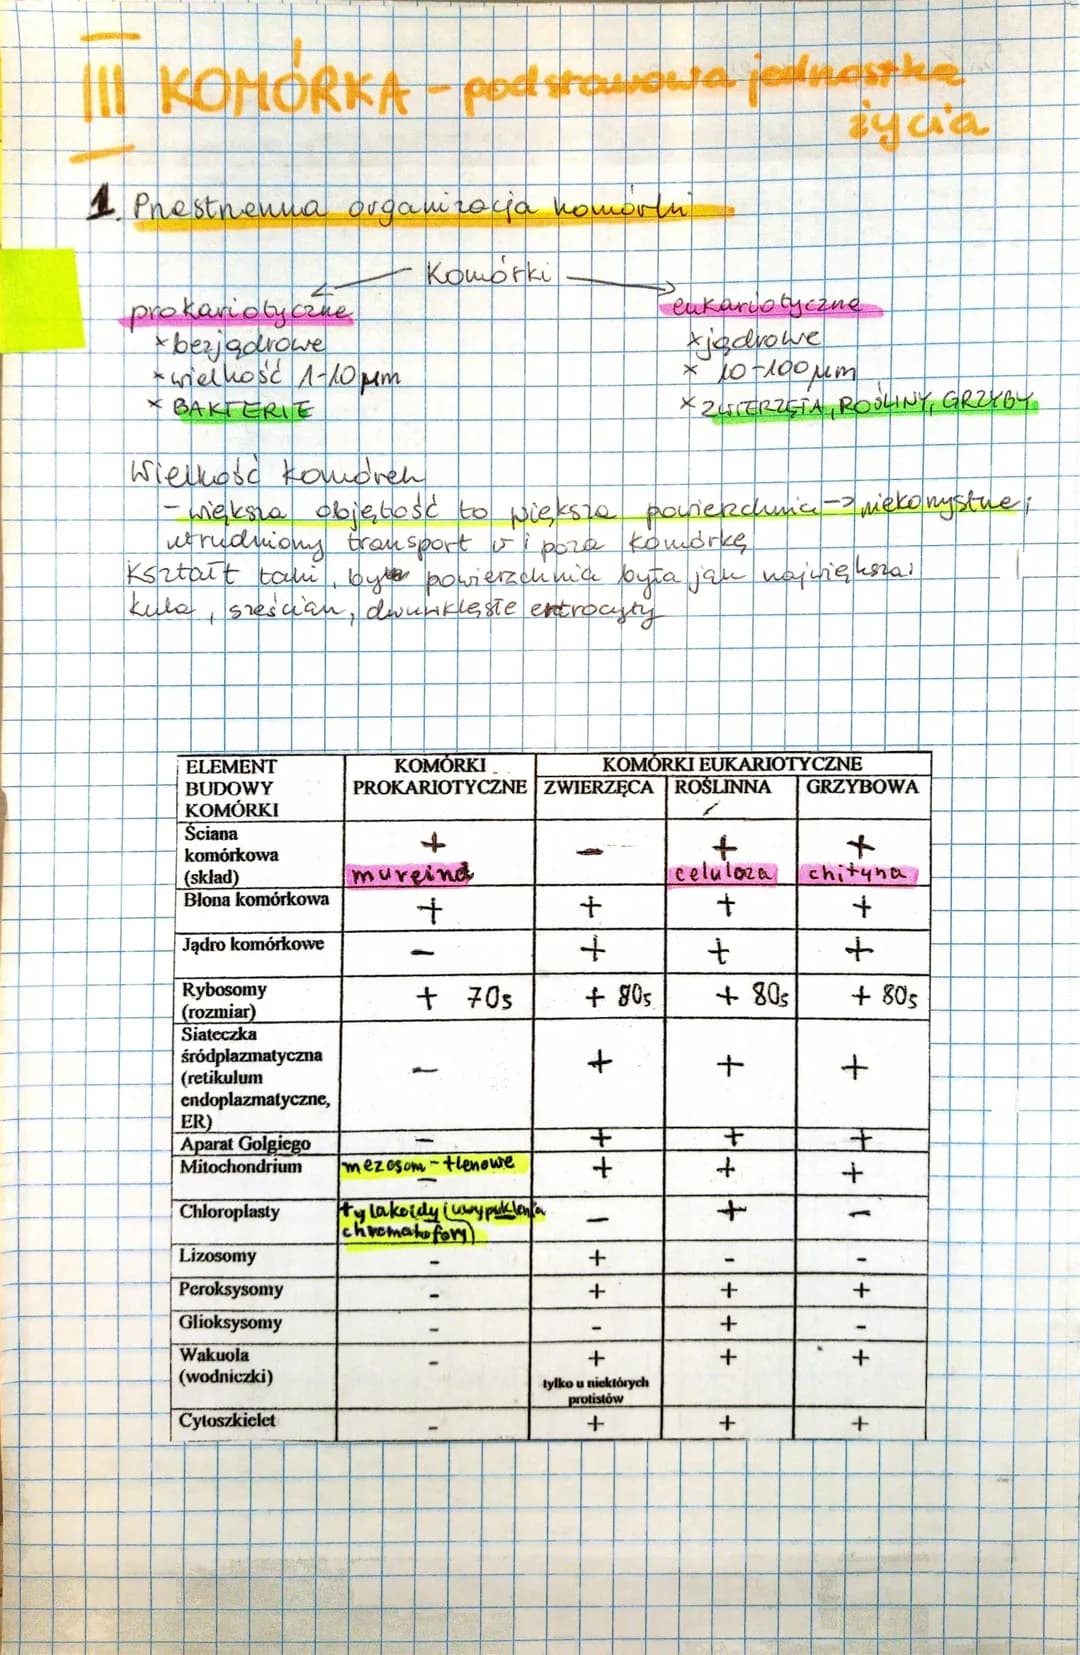 III KOMÓRKA - podstawowa jednostka
życia
1. Przestrzenna organizacja komórki
Komórki
prokariotyczne
x bezjądrowe
x wielkość 1-10 μm
x BAKTERIE
eukariotyczne
x jądrowe
x 10-100 μm
x ZWIERZĘTA, ROŚLINY, GRZYBY
Wielkość komórek
- większa objętość to większa powierzchnia -> niekorzystne;
utrudniony transport w i poza komórkę
Kształt taki, by powierzchnia była jak największa:
kula, sześcian, dwuwklęsłe entrocyty
ELEMENT BUDOWY KOMÓRKI | KOMÓRKI PROKARIOTYCZNE | KOMÓRKI EUKARIOTYCZNE
ZWIERZĘCA | ROŚLINNA | GRZYBOWA
Ściana komórkowa (skład) | + mureina | - | + celuloza | + chityna
Błona komórkowa | + | + | + | +
Jądro komórkowe | - | + | + | +
Rybosomy (rozmiar) | + 70s | + 80s | + 80s | + 80s
Siateczka śródplazmatyczna (retikulum endoplazmatyczne, ER) | - | + | + | +
Aparat Golgiego | - | + | + | +
Mitochondrium | mezosom - tlenowe - | + | + | +
Chloroplasty | tylakoidy (uwypuklenia chromatofory) | - | + | -
Lizosomy | - | + | - | -
Peroksysomy | - | + | + | +
Glioksysomy | - | - | + | -
Wakuola (wodniczki) | - | + tylko u niektórych protistów | + | +
Cytoszkielet | - | + | + | +